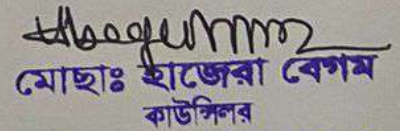 মোছাঃ হাজেরা বেগম
কাউন্সিলর